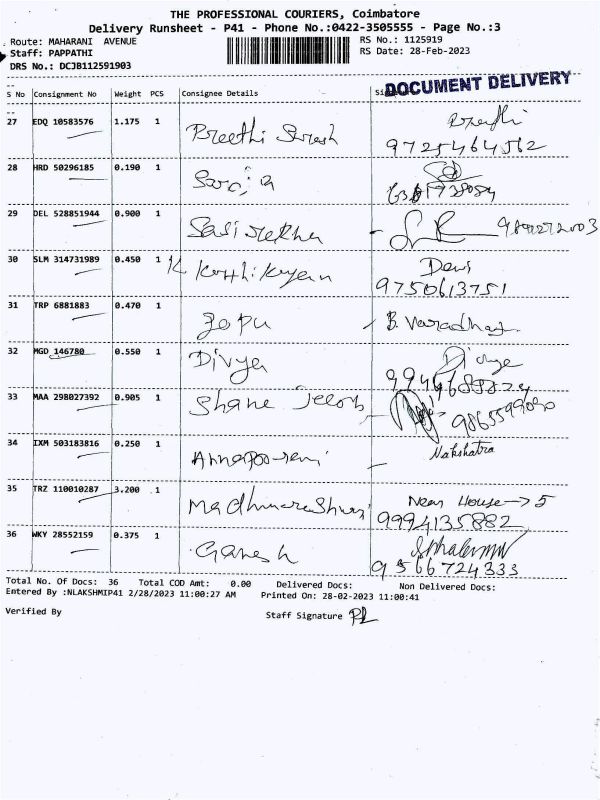 THE PROFESSIONAL COURIERS, Coimbatore
Delivery Runsheet - P41 - Phone No.:0422-3505555 - Page No.:3
Route: MAHARANI AVENUE RS No.: 1125919
Staff: PAPPATHI RS Date: 28-Feb-2023
DRS No.: DCJB112591903
DOCUMENT DELIVERY
S No Consignment No Weight PCS Consignee Details
27 EDQ 10583576 1.175 1 Preethi Suresh Preethi
9725464562
28 HRD 50296185 0.190 1 Saroja
29 DEL 528851944 0.900 1 Sasirekha
30 SLM 314731989 0.450 1 K Karthikeyan Devi
9750613751
31 TRP 6881883 0.470 1 Gopu B. Varadhaj
32 MGD 146780 0.550 1 Divya Divya
33 MAA 298027392 0.905 1 Shane
34 IXM 503183816 0.250 1 Annapoorani Nakshatra
35 TRZ 110010287 3.200 1 Madhumathi Near House → 5
9994135882
36 WKY 28552159 0.375 1 Ganesh
9566724333
Total No. Of Docs: 36 Total COD Amt: 0.00 Delivered Docs: Non Delivered Docs:
Entered By :NLAKSHMIP41 2/28/2023 11:00:27 AM Printed On: 28-02-2023 11:00:41
Verified By Staff Signature